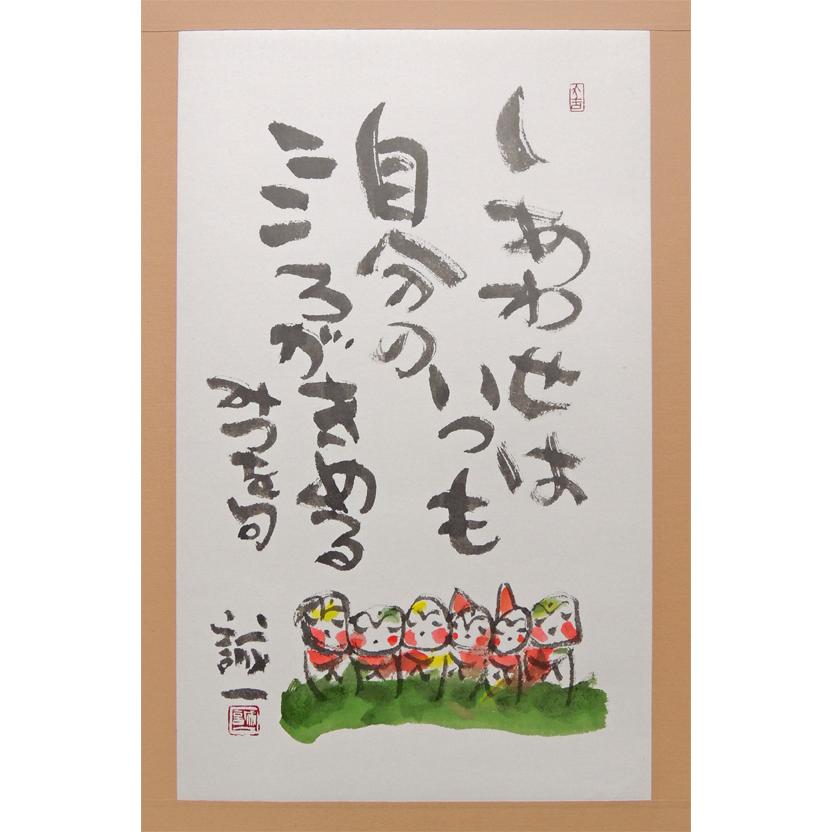 しあわせは
いつも
自分の
こころがきめる
みつを句
誠一